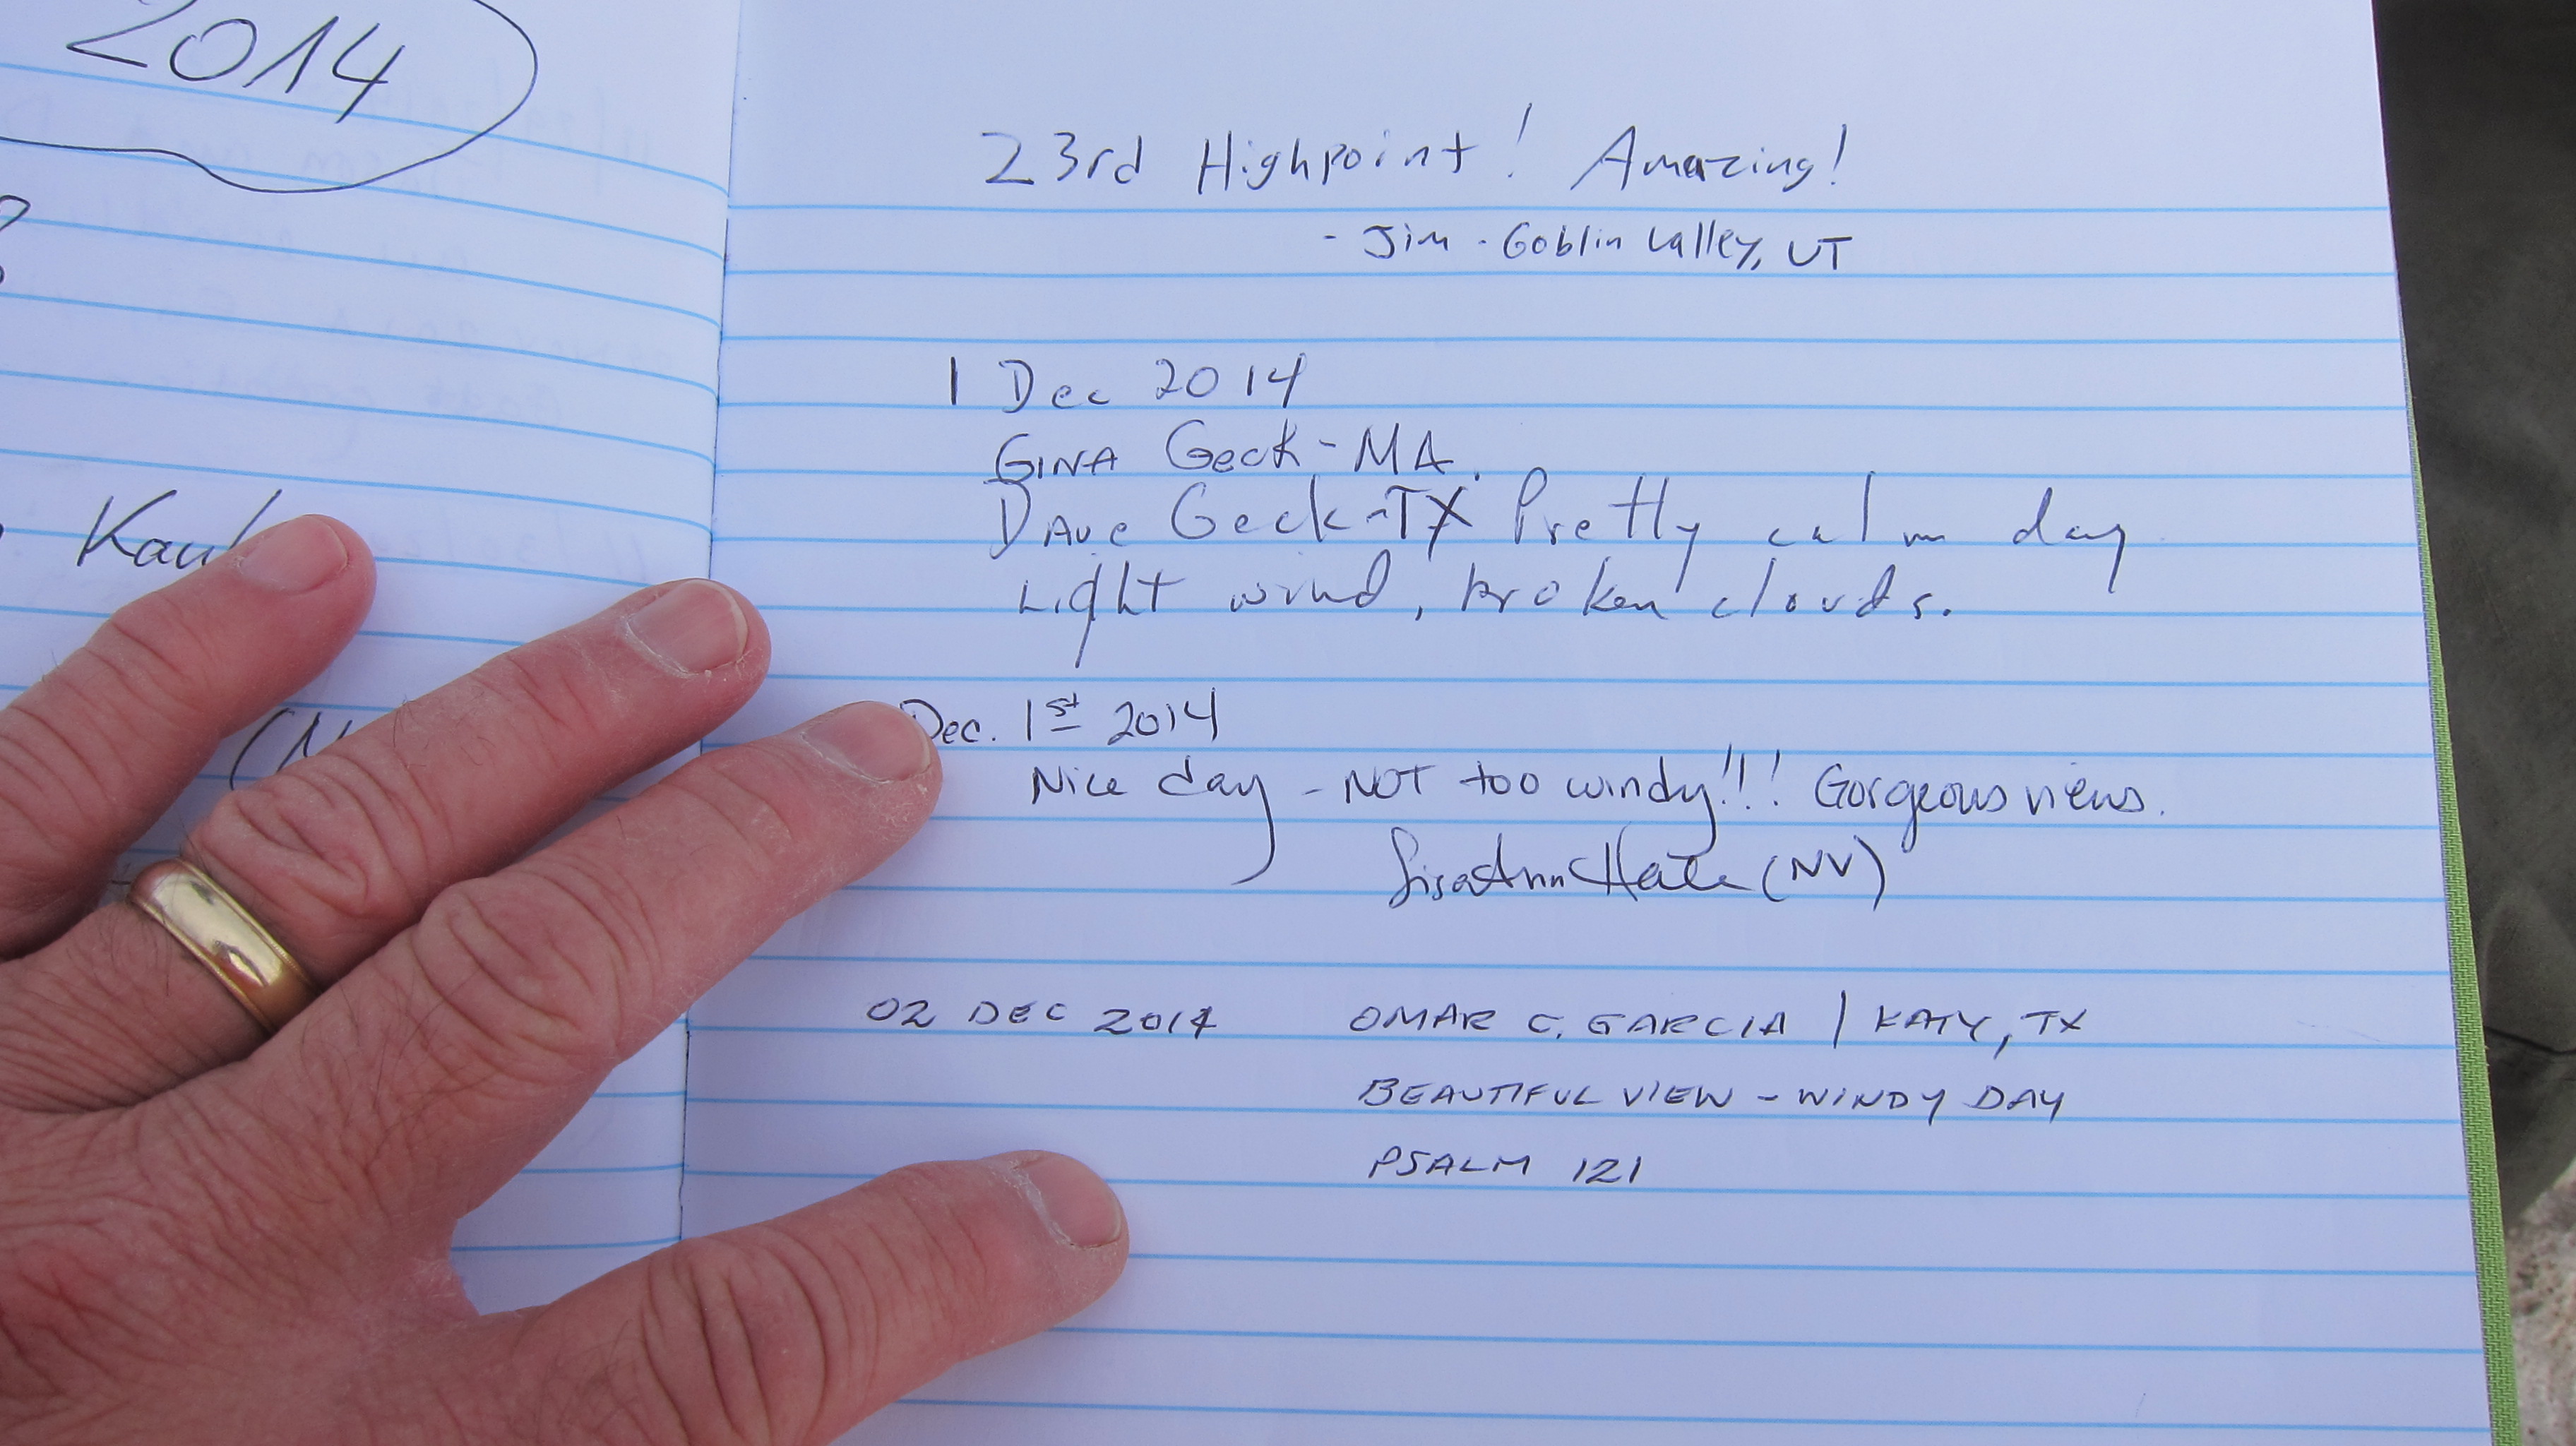 2014
23rd Highpoint! Amazing!
- Jim - Goblin Valley, UT
1 Dec 2014
GINA Geck - MA.
DAVE Geck - TX Pretty calm day
Light wind, broken clouds.
Dec. 1st 2014
Nice day - NOT too windy!!! Gorgeous views.
(NV)
02 DEC 2014 OMAR C. GARCIA | KATY, TX
BEAUTIFUL VIEW - WINDY DAY
PSALM 121